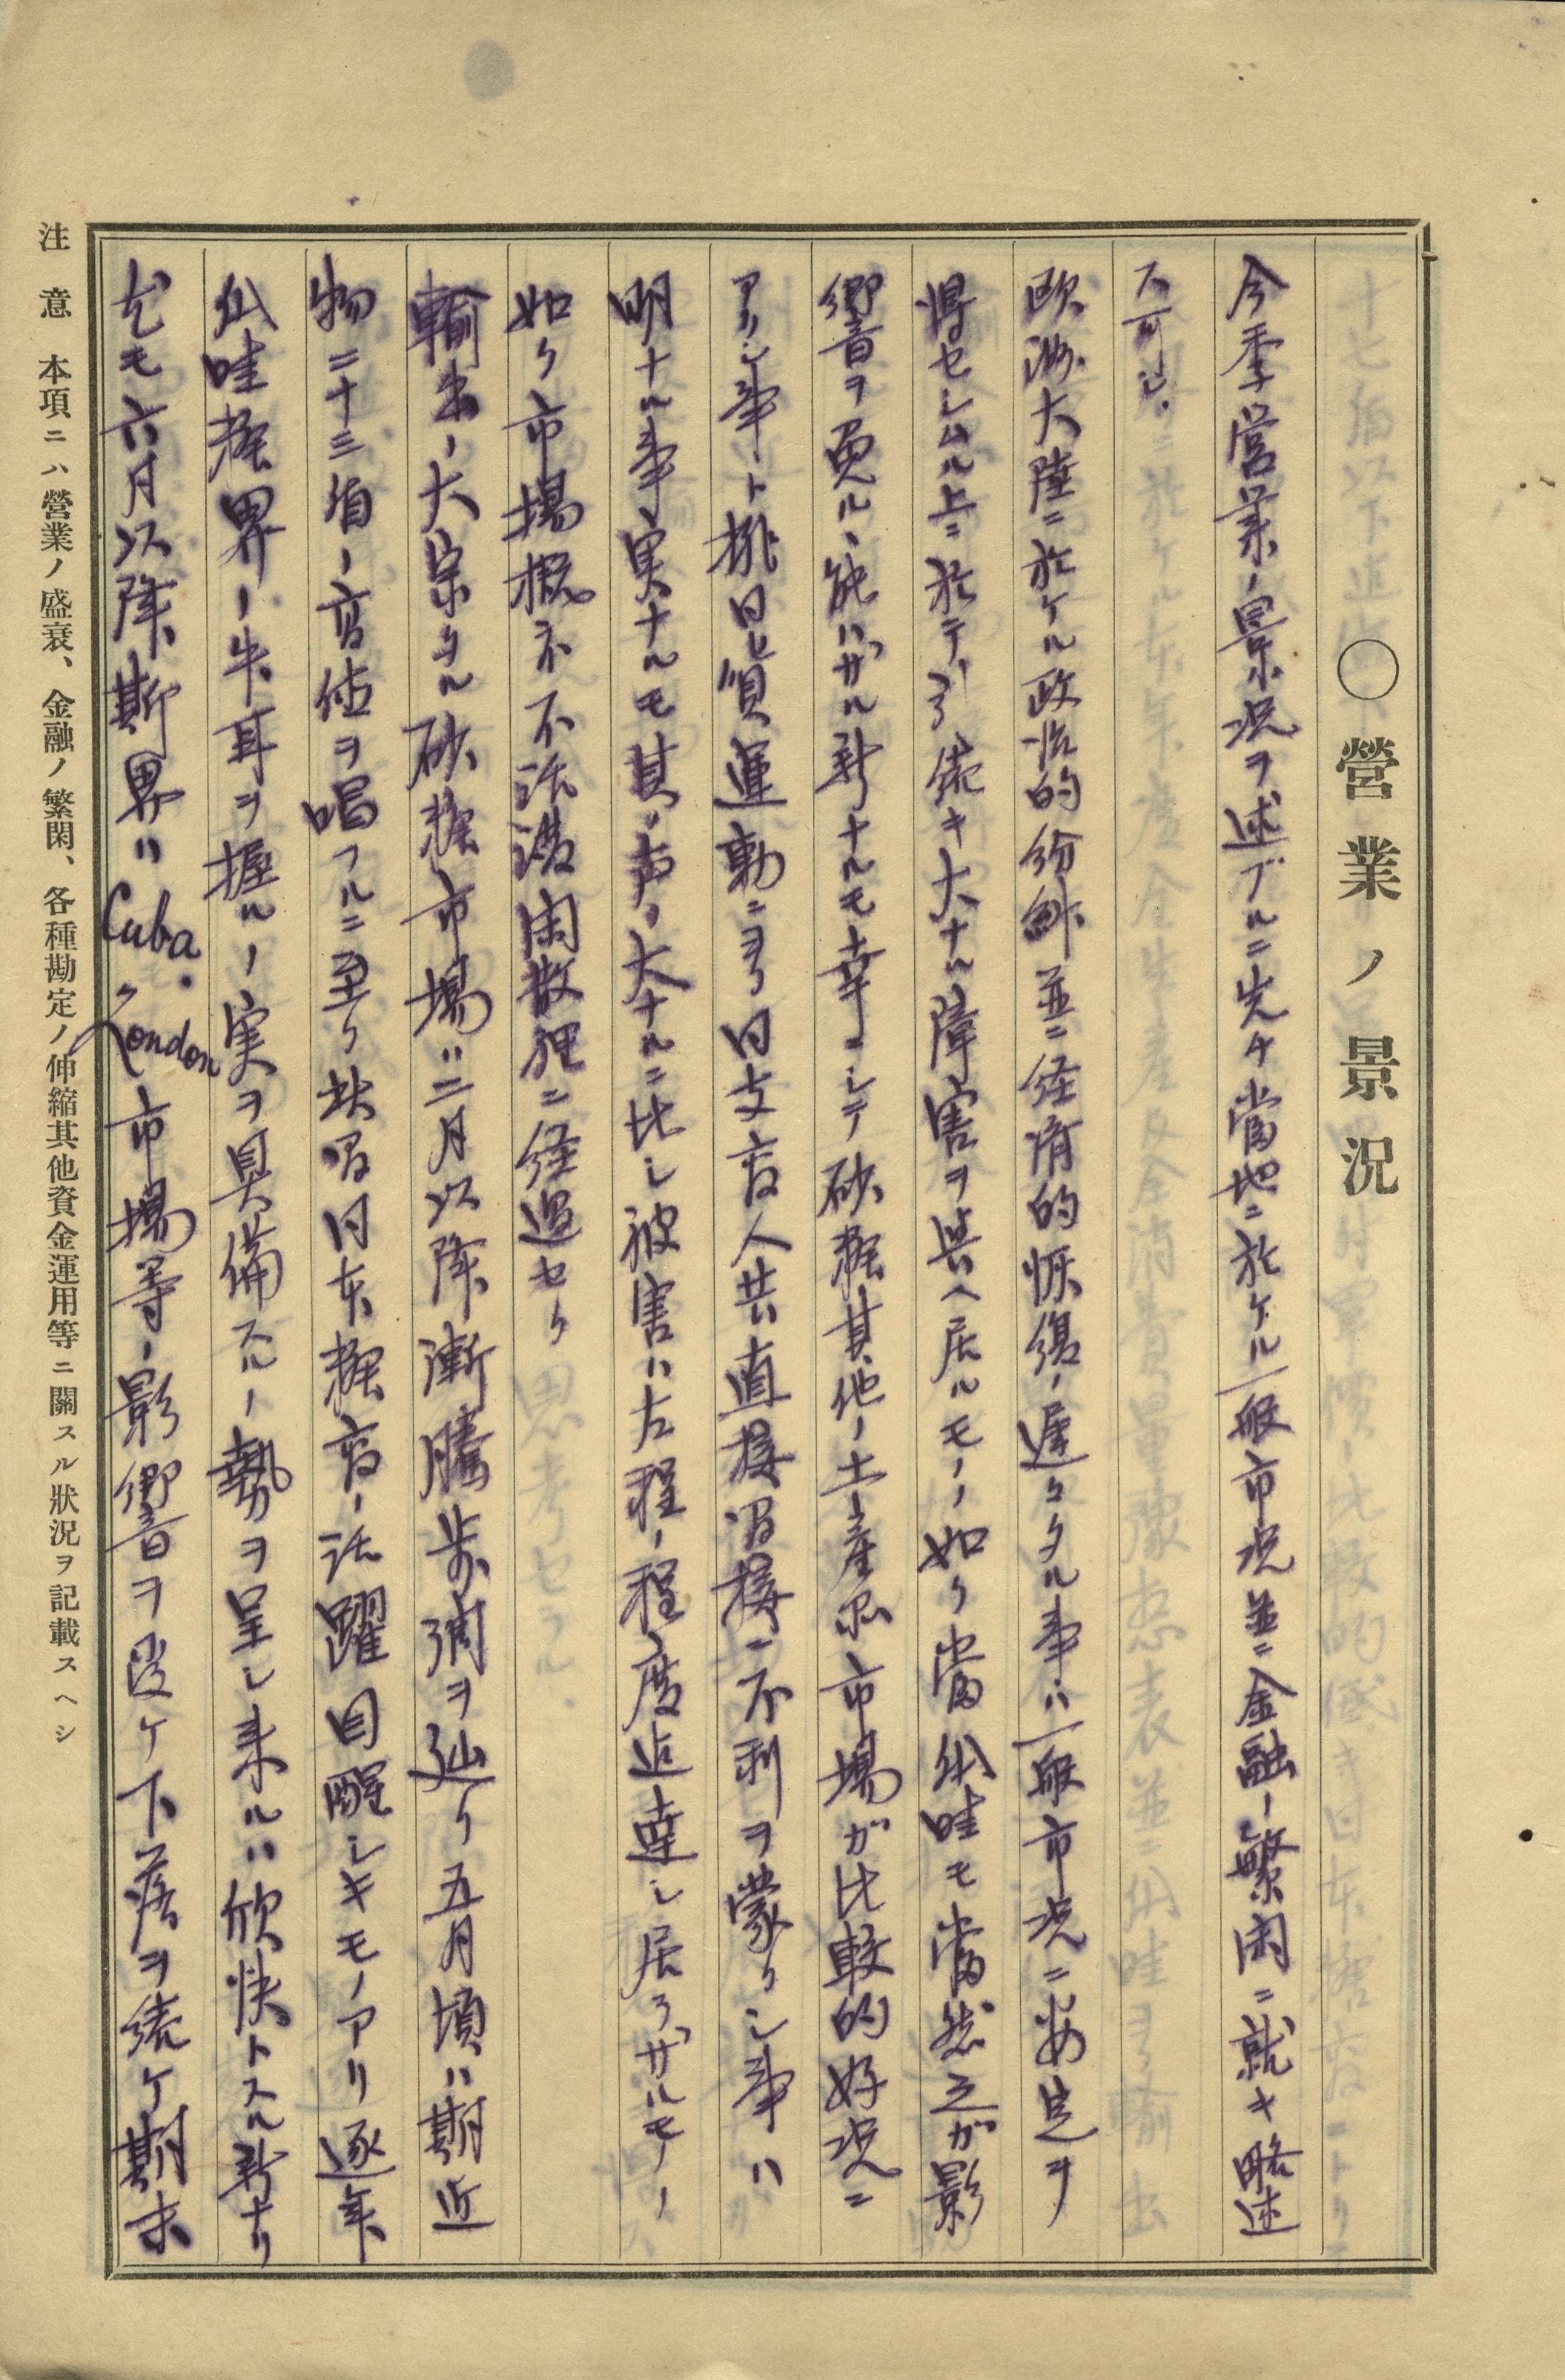 〇營業ノ景況
今季営業ノ景況ヲ述ブルニ先チ當地ニ於ケル一般市況並ニ金融ノ繁閑ニ就キ略述
ス可シ.
欧洲大陸ニ於ケル政治的紛糾並ニ経済的恢復ノ遅々タル事ハ一般市況ニ安定ヲ
得セシムル上ニ於テ引続キ大ナル障害ヲ與ヘ居ルモノノ如ク當瓜哇モ當然之ガ影
響音ヲ免ルヽ能ハザル所ナルモ幸ニシテ砂糖其他ノ土産品市場ガ比較的好況ニ
アリシ事ト排日貨運動ニヨリ日支商人共直接間接ニ不利ヲ蒙リシ事ハ
明ナル事実ナルモ其ノ声ノ大ナルニ比シ被害ハ左程ノ程度迄達シ居ラザルモノノ
如ク市場概ネ不活溌閑散裡ニ経過セリ
輸出ノ大宗タル砂糖市場ハ二月以降漸騰歩調ヲ辿リ五月頃ハ期近
物二十三盾ノ高値ヲ唱フルニ至リ殊ニ日本糖商ノ活躍目醒シキモノアリ逐年
瓜哇糖界ノ牛耳ヲ握ルノ実ヲ具備スルノ勢ヲ呈シ来ルハ欣快トスル所ナリ
尤モ六月以降斯界ハ Cuba. London 市場等ノ影響ヲ受ケ下落ヲ続ケ期末
注意 本項ニハ營業ノ盛衰、金融ノ繁閑、各種勘定ノ伸縮其他資金運用等ニ關スル狀況ヲ記載スヘシ